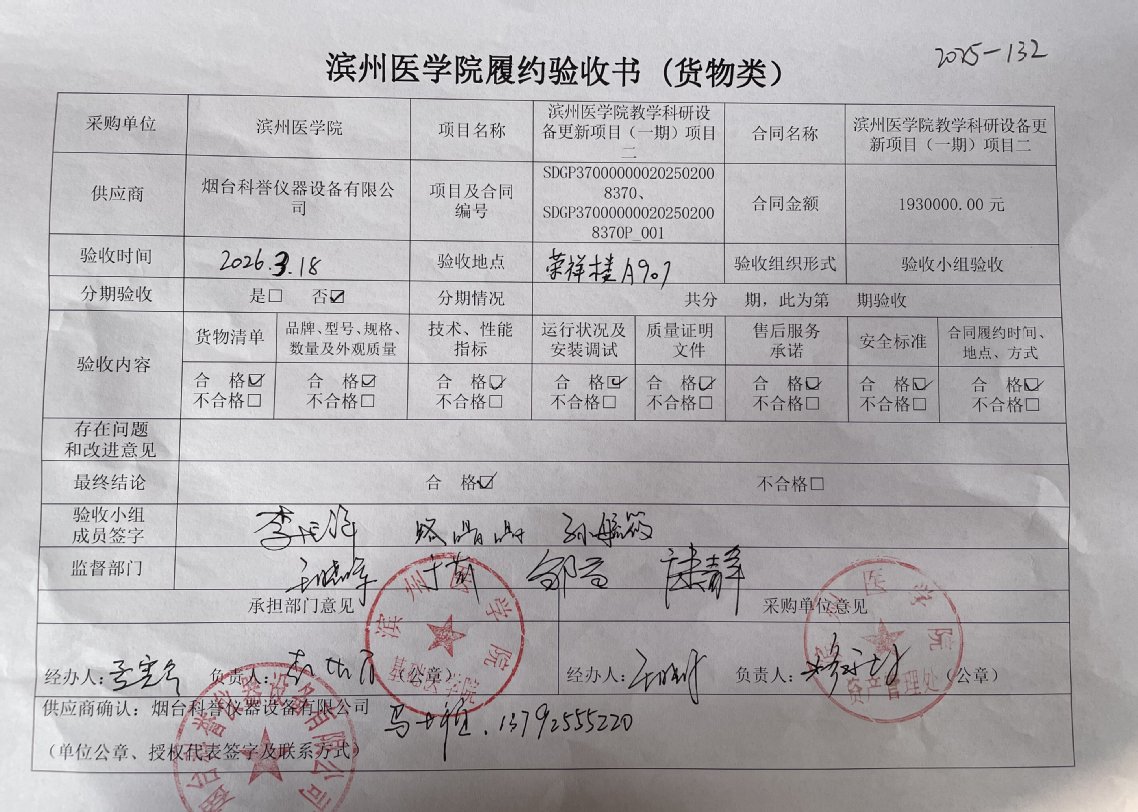 2025-132
滨州医学院履约验收书（货物类）
采购单位 滨州医学院 项目名称 滨州医学院教学科研设备更新项目（一期）项目二 合同名称 滨州医学院教学科研设备更新项目（一期）项目二
供应商 烟台科誉仪器设备有限公司 项目及合同编号 SDGP370000000202502008370、SDGP370000000202502008370P_001 合同金额 1930000.00 元
验收时间 2026.3.18 验收地点 荣祥楼A907 验收组织形式 验收小组验收
分期验收 是□ 否☑ 分期情况 共分 期，此为第 期验收
验收内容 货物清单 品牌、型号、规格、数量及外观质量 技术、性能指标 运行状况及安装调试 质量证明文件 售后服务承诺 安全标准 合同履约时间、地点、方式
合 格☑ 合 格☑ 合 格☑ 合 格☑ 合 格☑ 合 格☑ 合 格☑ 合 格☑
不合格□ 不合格□ 不合格□ 不合格□ 不合格□ 不合格□ 不合格□ 不合格□
存在问题和改进意见
最终结论 合 格☑ 不合格□
验收小组成员签字
监督部门
承担部门意见 采购单位意见
经办人： 负责人： （公章） 经办人： 负责人： （公章）
供应商确认：烟台科誉仪器设备有限公司 13792555220
（单位公章、授权代表签字及联系方式）
滨州医学院
基础医学院
滨州医学院
资产管理处
烟台科誉仪器设备有限公司